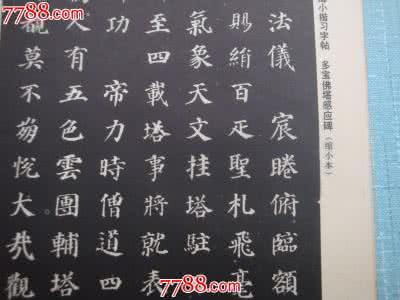 小楷习字帖 多宝佛塔感应碑(缩小本)
法儀 宸睠俯臨額
賜絹百疋聖札飛毫
氣象天文挂塔駐
至四載塔事將就表
功 帝力時僧道四
人有五色雲團輔塔
觀莫不蒭悅大哉觀
7788.com
7788.com
7788.com
7788.com